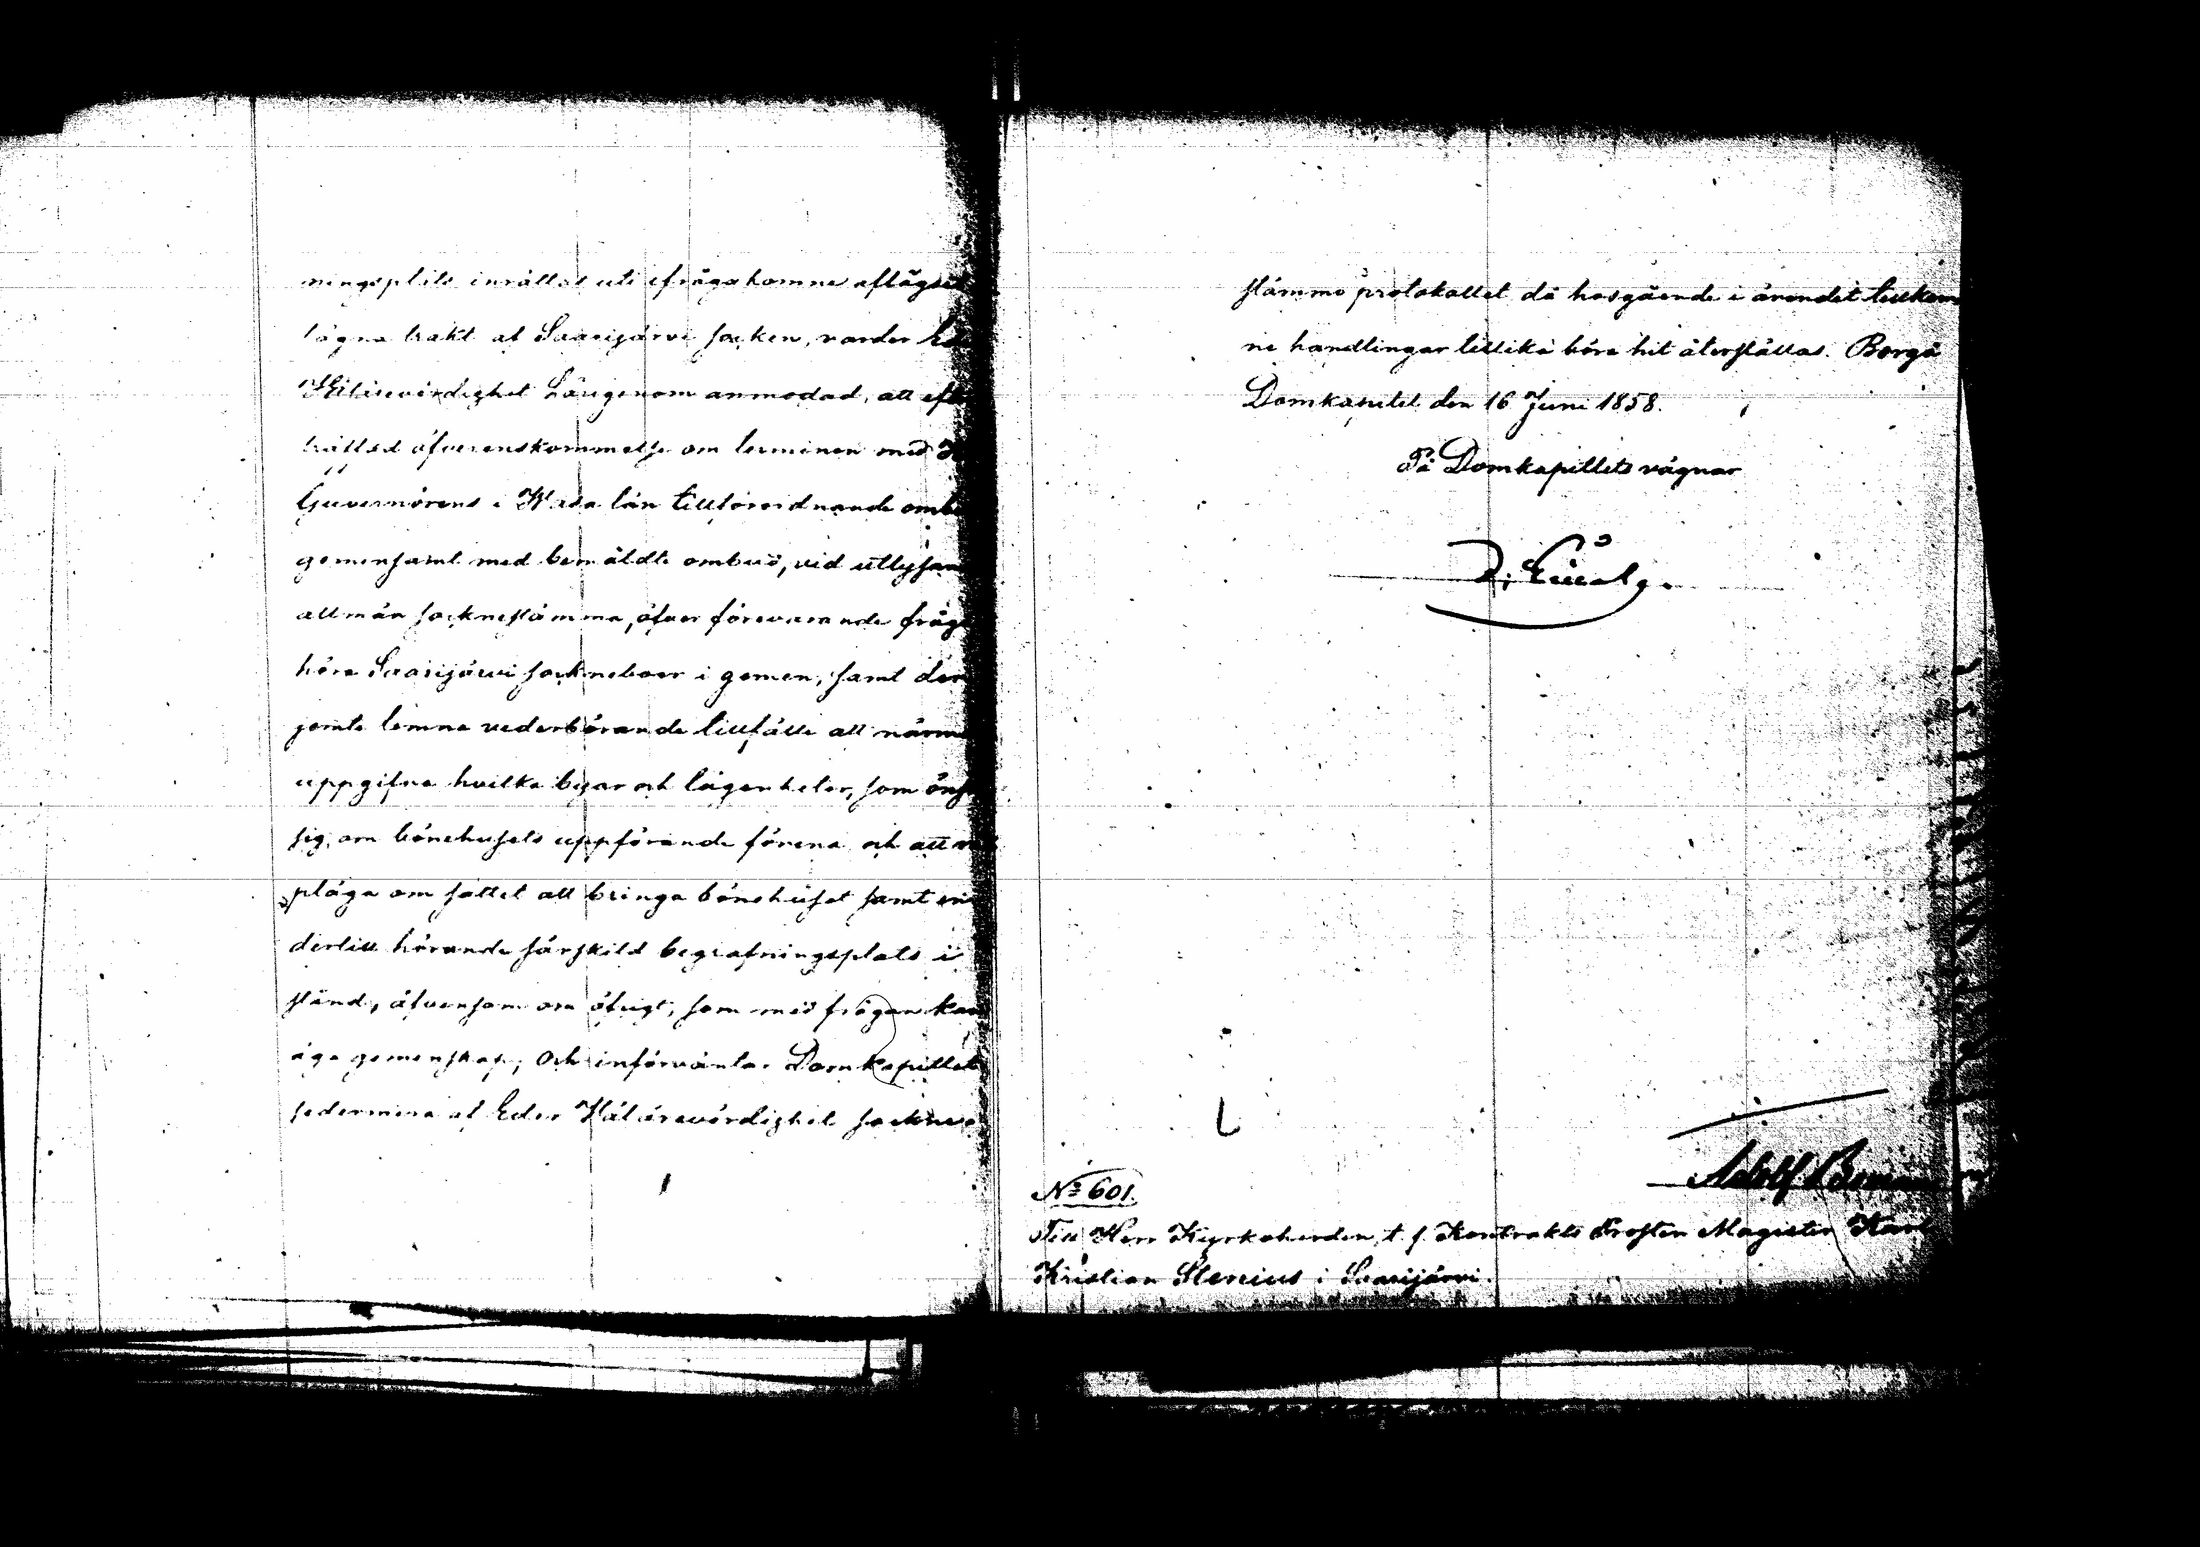 ningsplats inrättas uti ifrågakomne aflägset
lägna trakt af Saarijärvi socken, varder
Högärevördighet härigenom anmodad, att
träffad öfverenskommelse om terminen med
Guvernörens i Wasa län tillförordnande
gemensamt med bemäldte ombud, vid utlysan
allmän socknestämma, öfver förevarande
höra Saarijärvi sockneboer i gemen, samt der
jemte lemna vederbörande tillfälle att
uppgifva hvilka byar och lägenheter, som
sig om bönehusets uppförande förena och att
plåga om sättet att bringa bönehuset samt
dertill hörande särskild begrafningsplats i
stånd, äfvensom om öfrigt, som med frågan kan
äga gemenskap; Och införväntar Domkapitlet
sedermera af Eder Högärevördighet
stämmo protokollet då hosgående i ärendet tillkom
ne handlingar tillika böra hit återställas. Borgå
Domkapitel den 16 Juni 1858.
På Domkapitlets vägnar
Adolf
No 601.
Till Herr Kyrkoherden, t. f. Kontrakts Prosten Magister Karl
Kristian Stenius i Saarijärvi.